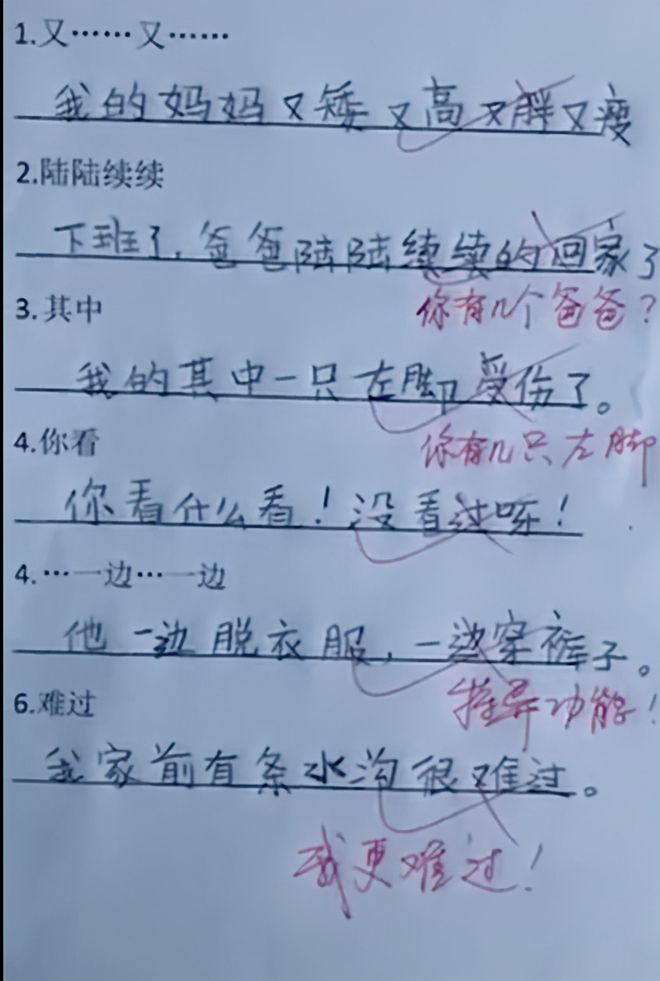 1.又……又……
我的妈妈又矮又高又胖又瘦
2.陆陆续续
下班了,爸爸陆陆续续的回家了
3.其中
你有几个爸爸?
我的其中一只左脚受伤了。
4.你看
你有几只左脚
你看什么看!没看过呀!
4.…一边…一边
他一边脱衣服,一边穿裤子。
6.难过
特异功能!
我家前有条水沟很难过。
我更难过!